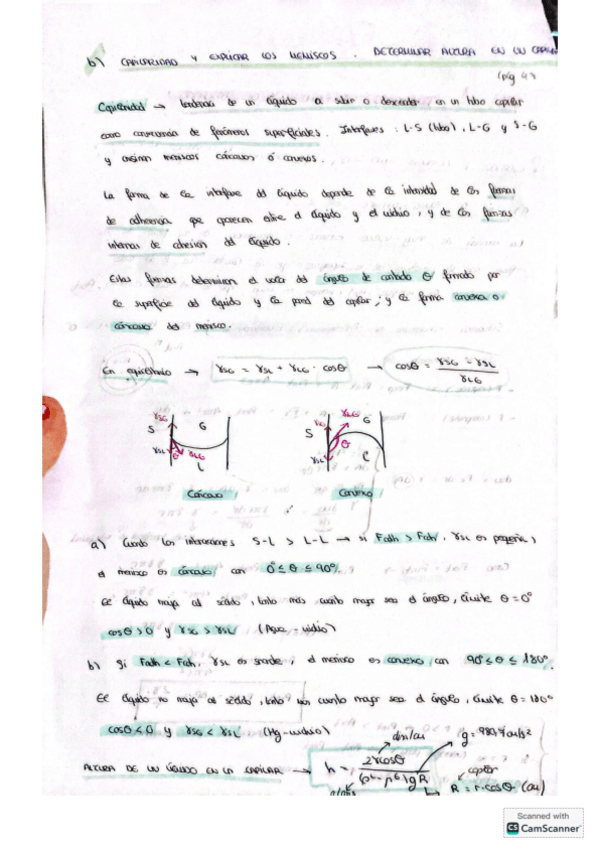 b) CAPILARIDAD Y EXPLICAR LOS MENISCOS. DETERMINAR ALTURA EN UN CAPILAR
(pág 4)
Capilaridad → tendencia de un líquido a subir o descender en un tubo capilar
como consecuencia de fenómenos superficiales. Interfases: L-S (tubo), L-G y S-G
y originan meniscos cóncavos ó convexos.
La forma de la interfase del líquido depende de la intensidad de las fuerzas
de adherencia que aparecen entre el líquido y el vidrio, y de las fuerzas
internas de cohesión del líquido.
Estas fuerzas determinan el valor del ángulo de contacto θ formado por
la superficie del líquido y la pared del capilar; y la forma convexa o
cóncava del menisco.
En equilibrio → γSG = γSL + γLG · cosθ → cosθ = (γSG - γSL) / γLG
γSG S G γSL θ γLG L
γLG G S θ γSL L
Cóncavo Convexo
a) Cuando las interacciones S-L > L-L → si Fadh > Fcoh, γSL es pequeña,
el menisco es cóncavo, con 0° ≤ θ ≤ 90°.
El líquido moja al sólido, tanto más cuanto mayor sea el ángulo, límite θ=0°
cosθ > 0 y γSG > γSL (Agua - vidrio)
b) Si Fadh < Fcoh, γSL es grande, el menisco es convexo, con 90° ≤ θ ≤ 180°.
El líquido no moja al sólido, tanto más cuanto mayor sea el ángulo, límite θ=180°
cosθ < 0 y γSG < γSL (Hg-vidrio)
din/cm g = 980,7 cm/s²
ALTURA DE UN LÍQUIDO EN LA CAPILAR → h = 2γcosθ / (ρL - ρG)gR
R = r·cosθ (cm)
Scanned with
CS CamScanner